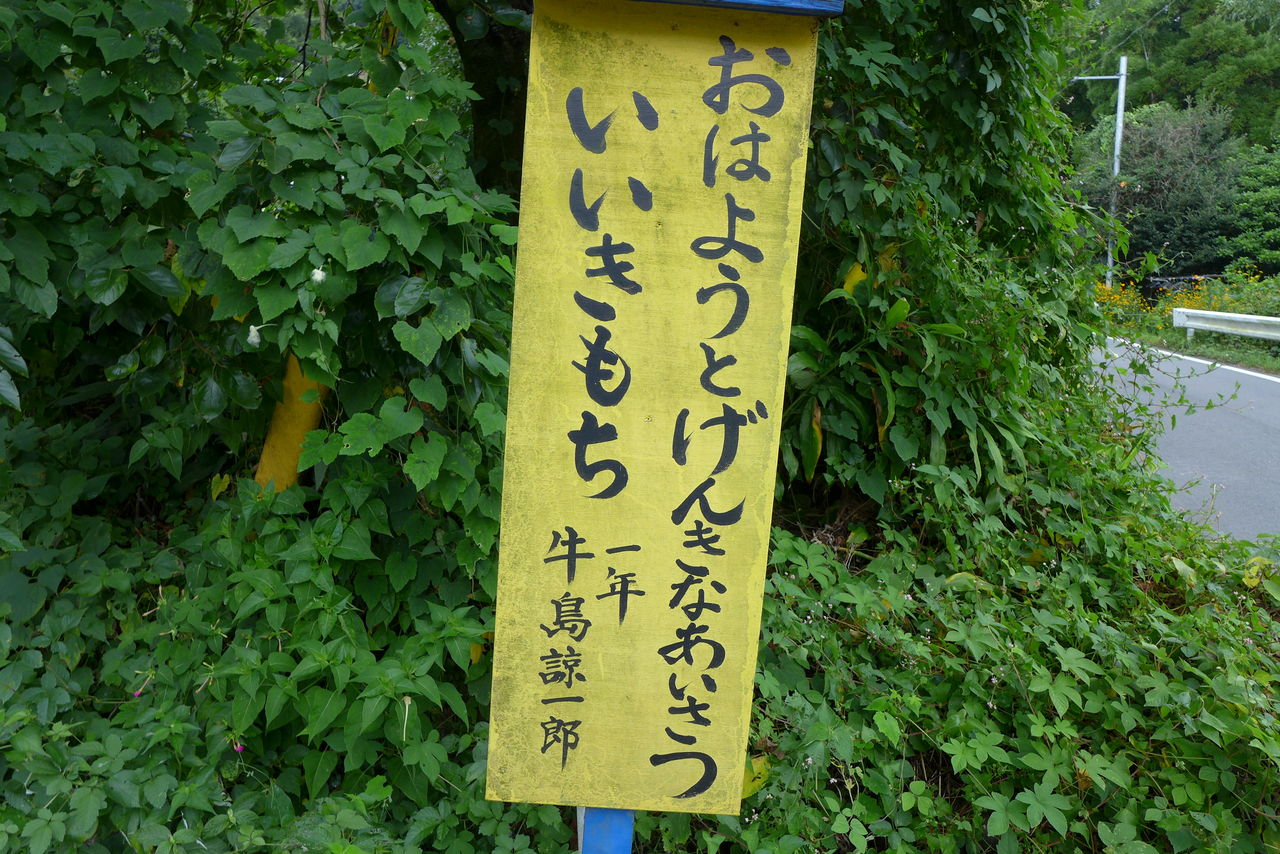 おはようとげんきなあいさつ
いいきもち
一年
牛島諒一郎